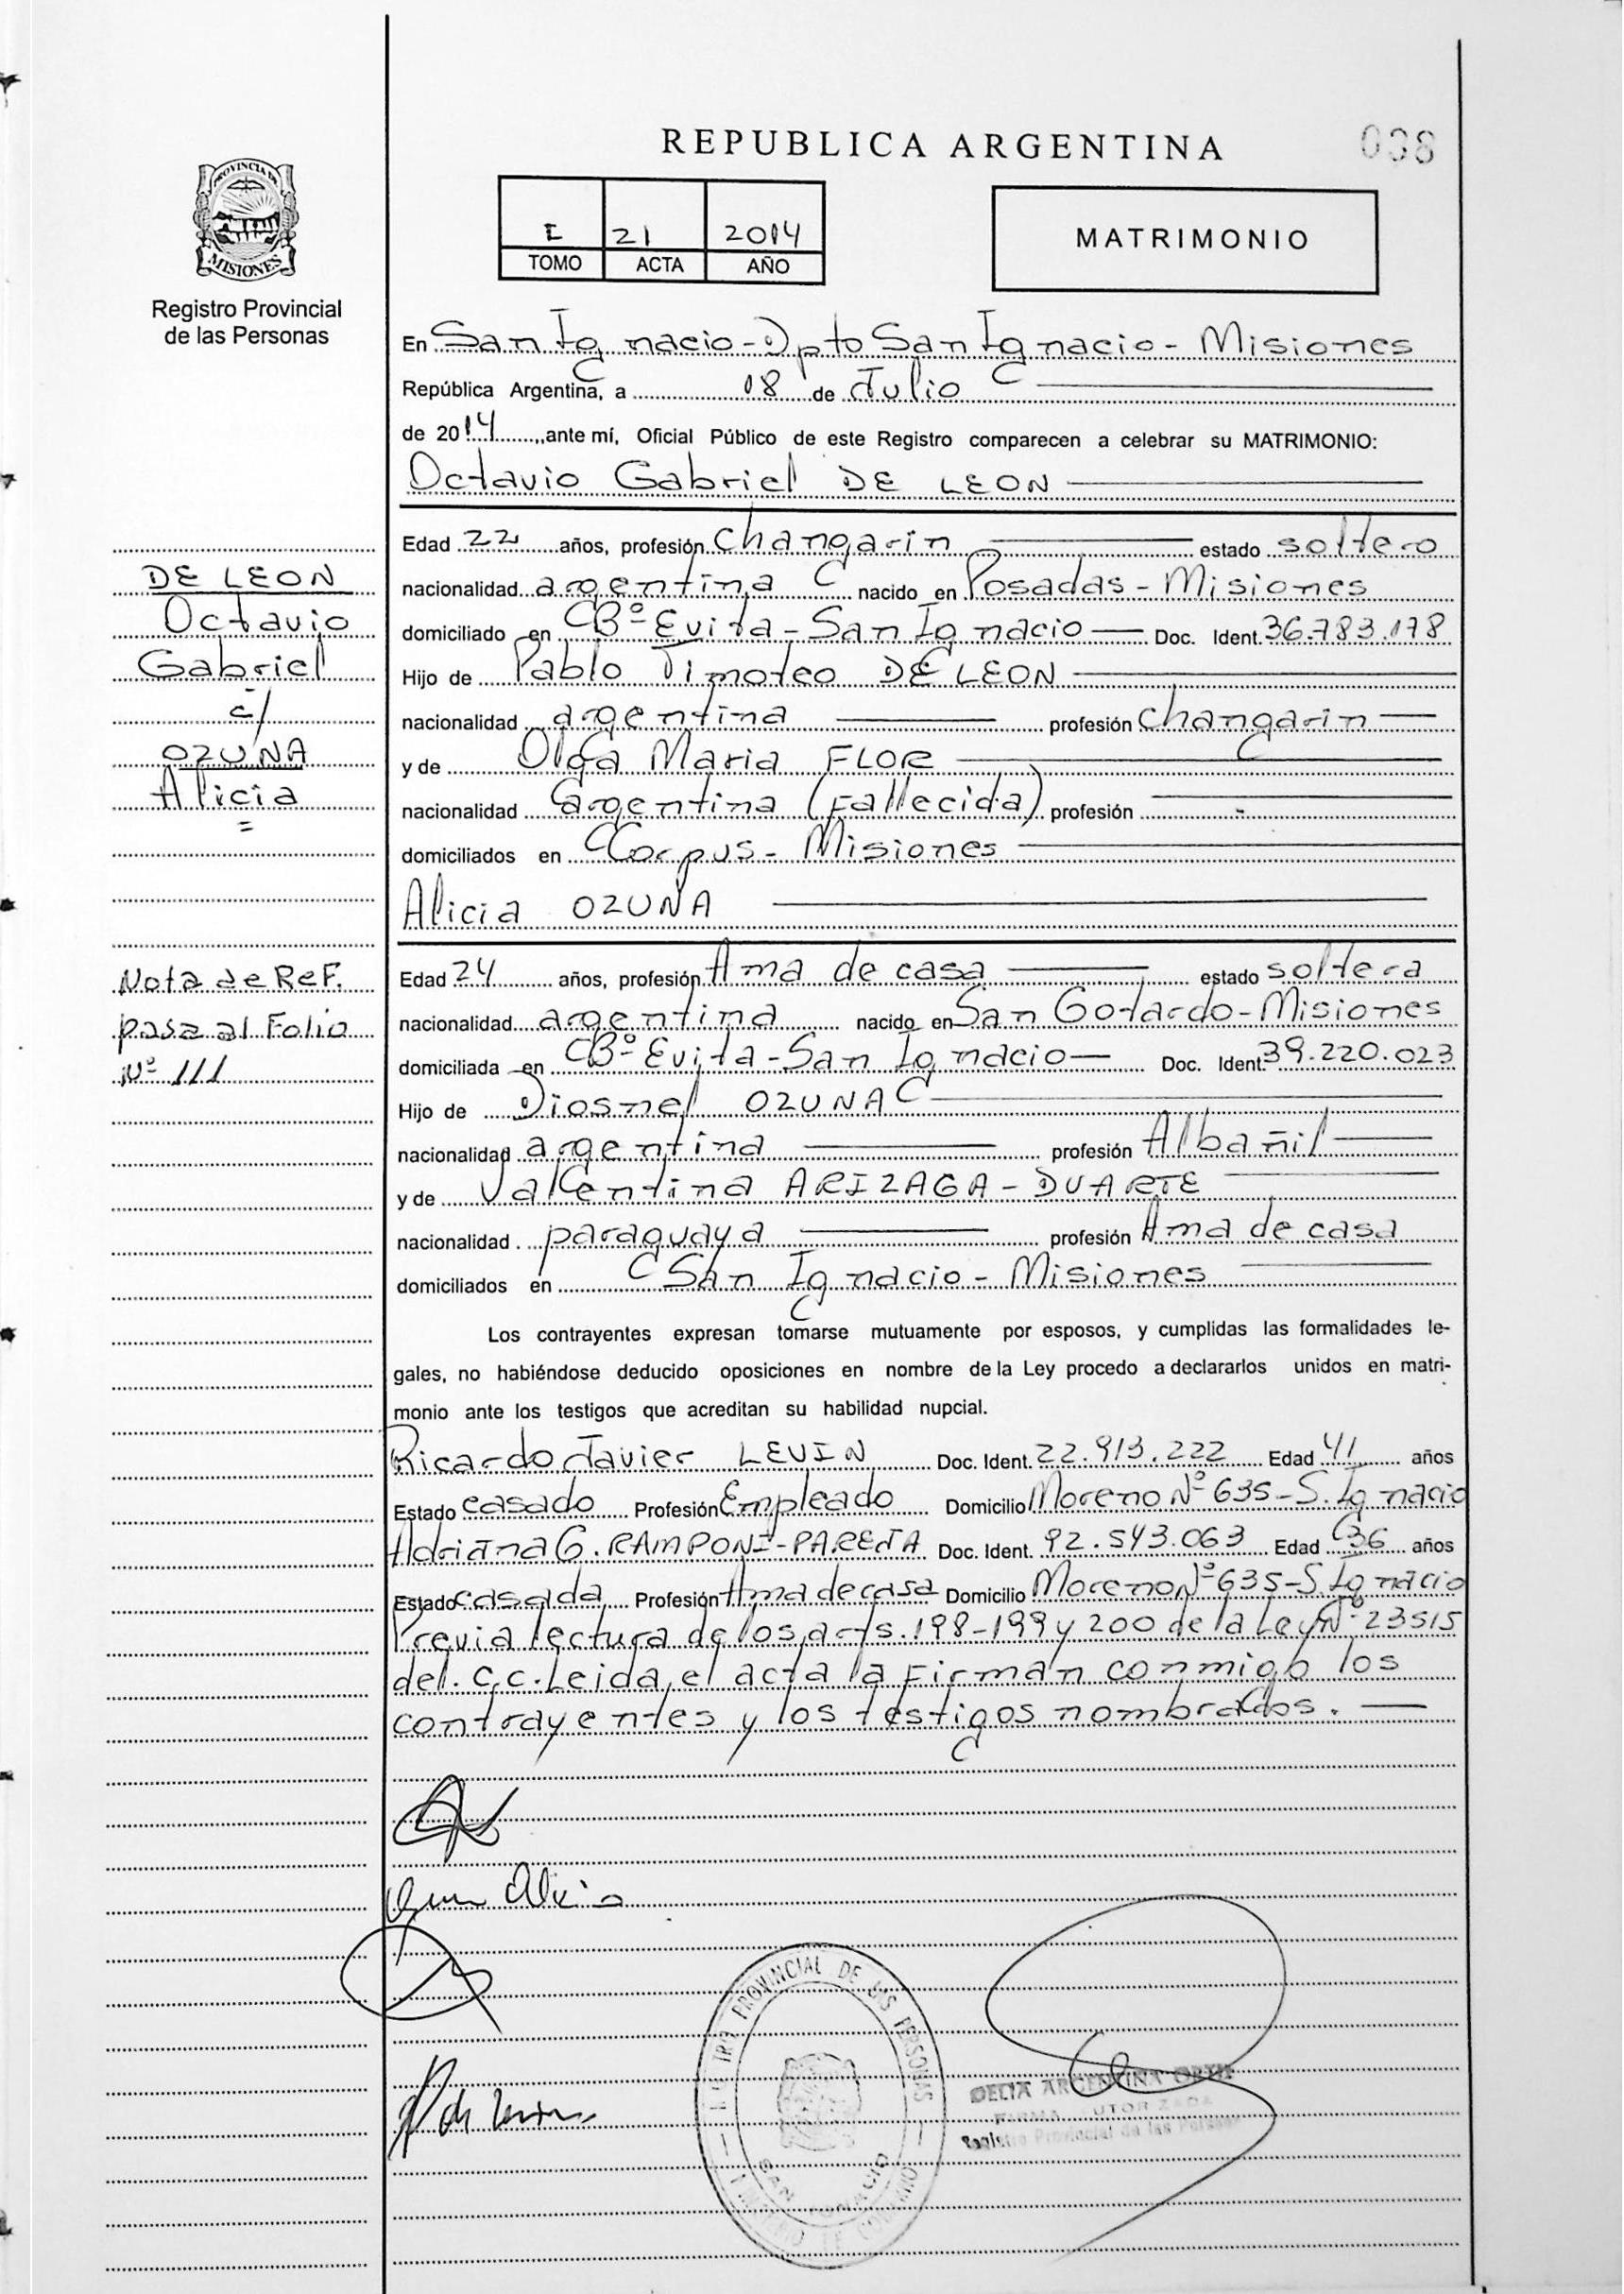 REPUBLICA ARGENTINA
008
PROVINCIA DE
MISIONES
Registro Provincial
de las Personas
I 21 2014
TOMO ACTA AÑO
MATRIMONIO
En San Ignacio - Dpto San Ignacio - Misiones
República Argentina, a 08 de Julio
de 2014, ante mí, Oficial Público de este Registro comparecen a celebrar su MATRIMONIO:
Octavio Gabriel DE LEON
Edad 22 años, profesión changarin estado soltero
nacionalidad argentina nacido en Posadas - Misiones
domiciliado en Bº Evita - San Ignacio Doc. Ident. 36.783.178
Hijo de Pablo Timoteo DE LEON
nacionalidad argentina profesión changarin
y de Olga Maria FLOR
nacionalidad argentina (Fallecida) profesión
domiciliados en Corpus - Misiones
Alicia OZUNA
Edad 24 años, profesión Ama de casa estado soltera
nacionalidad argentina nacido en San Gotardo - Misiones
domiciliada en Bº Evita - San Ignacio Doc. Ident. 39.220.023
Hijo de Diosnel OZUNA
nacionalidad argentina profesión Albañil
y de Valentina ARIZAGA - DUARTE
nacionalidad paraguaya profesión Ama de casa
domiciliados en San Ignacio - Misiones
Los contrayentes expresan tomarse mutuamente por esposos, y cumplidas las formalidades le-
gales, no habiéndose deducido oposiciones en nombre de la Ley procedo a declararlos unidos en matri-
monio ante los testigos que acreditan su habilidad nupcial.
Ricardo Javier LEVIN Doc. Ident. 22.913.222 Edad 41 años
Estado casado Profesión Empleado Domicilio Moreno Nº 635 - S. Ignacio
Adriana G. RAMPONI - PAREJA Doc. Ident. 92.543.063 Edad 36 años
Estado casada Profesión Ama de casa Domicilio Moreno Nº 635 - S. Ignacio
Previa lectura de los arts. 198-199 y 200 de la Ley Nº 23515
del. C.C. Leida el acta la Firman conmigo los
contrayentes y los testigos nombrados.
DE LEON
Octavio
Gabriel
c/
OZUNA
Alicia
=
Nota de ReF.
pasa al Folio
Nº 111
Alicia
PROVINCIAL DE LAS PERSONAS
SAN IGNACIO
DELIA ARGENTINA ORTIZ
FIRMA AUTORIZADA
Registro Provincial de las Personas